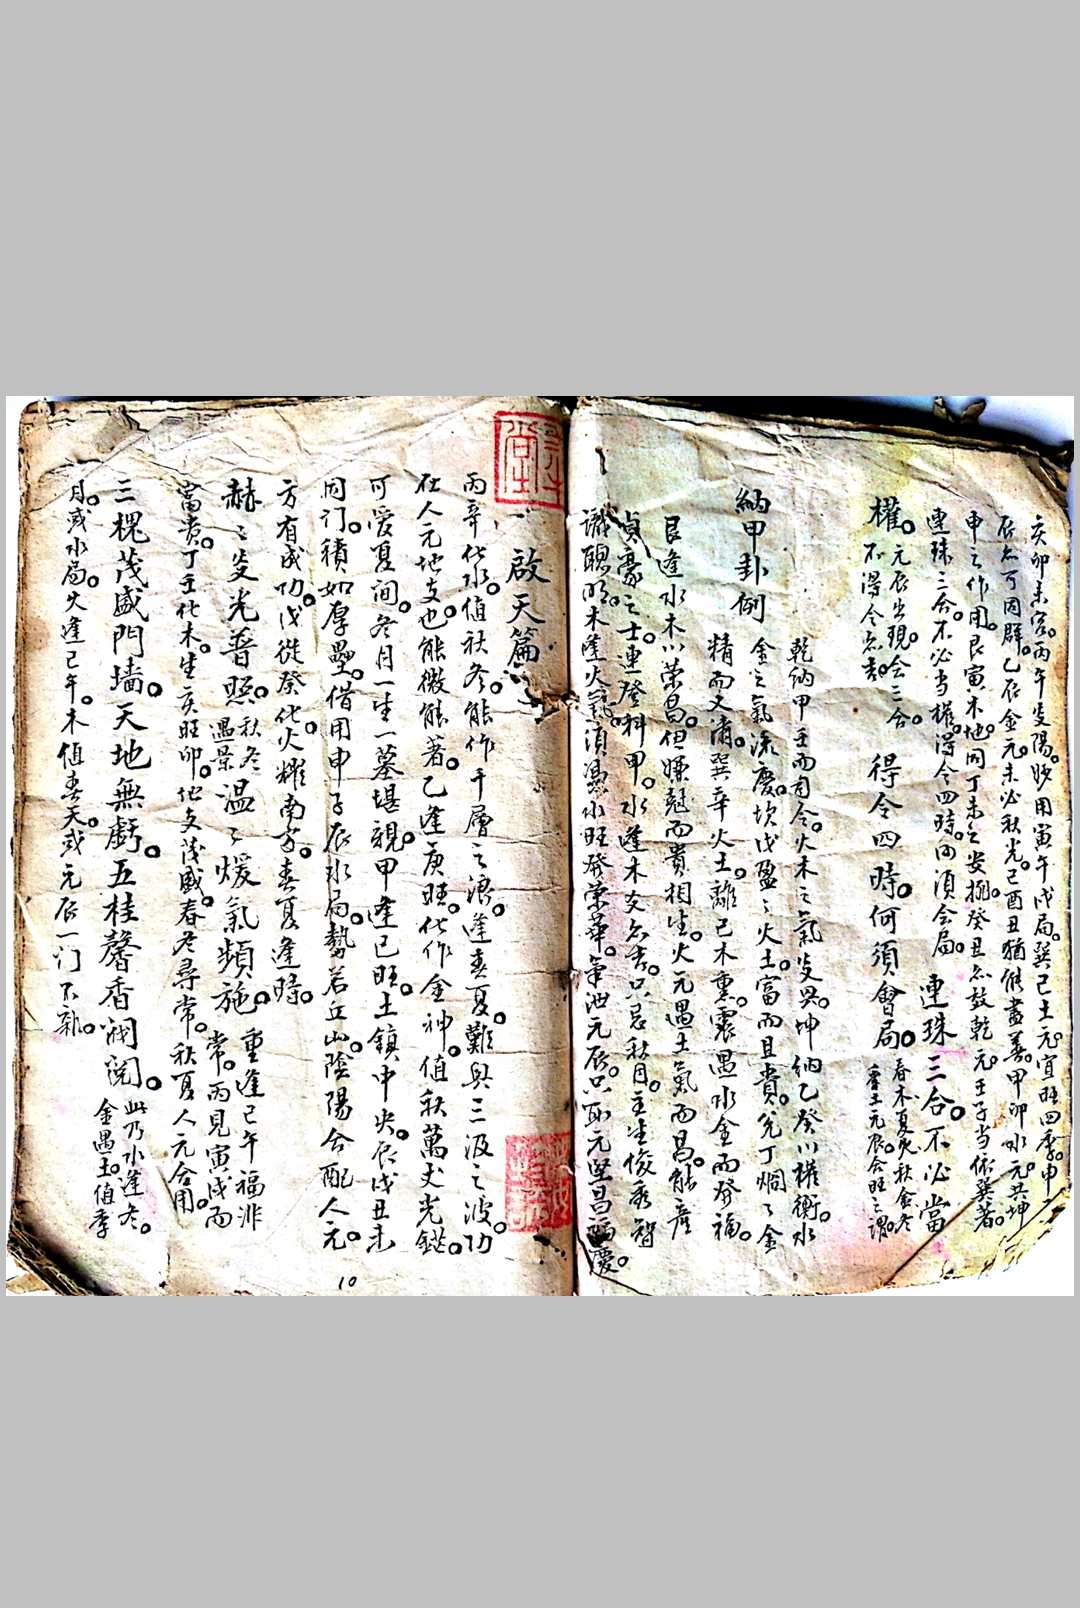 亥卯未宮。丙午發陽。妙用寅午戌局。巽己土元。宜旺四季。申子
辰亦可同群。乙辰金元。未必秋光。己酉丑猶能盡善。甲卯水元。共坤
申之作用。艮寅木地。同丁未之安排。癸丑亦鼓乾元。壬子当依巽著。
連珠三合。不必当權。得令四時。何須会局。 連珠三合。不必當
權。元辰出現。会三合。不得令亦吉。 得令四時。何須會局。春木夏火秋金冬水季土元辰。合旺之謂。
納甲卦例
乾納甲壬而司令。火木之氣發興。坤納乙癸以權衡。水
金之氣添慶。坎戊盈〻火土。富而且貴。兌丁烱〻金
精而文清。巽辛火土。離己木裏。震遇水金而發福。
艮逢水木以荣昌。但嫌尅而貴相生。火元遇土氣而昌。能產
貞豪之士。連登科甲。水逢木交亦吉。只忌秋月。主生俊秀智
識聰明。木逢火氣。須憑水旺發荣華。氣泄元辰。只取元堅昌福慶。
啟天篇
丙辛化水。值秋冬。能作千層之浪。逢春夏。難興三汲之波。功
在人元地支也。能微能著。乙逢庚旺。化作金神。值秋萬丈光鋩。
可愛夏间。冬月一生一墓堪親。甲逢己旺。土鎮中央。辰戌丑未
同行。積如厚壘。借用申子辰水局。勢若丘山。陰陽合配人元。
方有成功。戊從癸化。火耀南方。春夏逢時。
赫〻炎光普照。秋冬遇景。温〻煖氣頻施。重逢己午福非常。丙見寅戌而
富貴。丁壬化木。生亥旺卯。化支茂盛。春冬尋常。秋夏人元合用。
三槐茂盛門墙。天地無虧。五桂馨香闹閲。此乃水逢冬。金遇土。值季
月。或水局。火逢己午。木值春天。或元辰一门不孤。
10